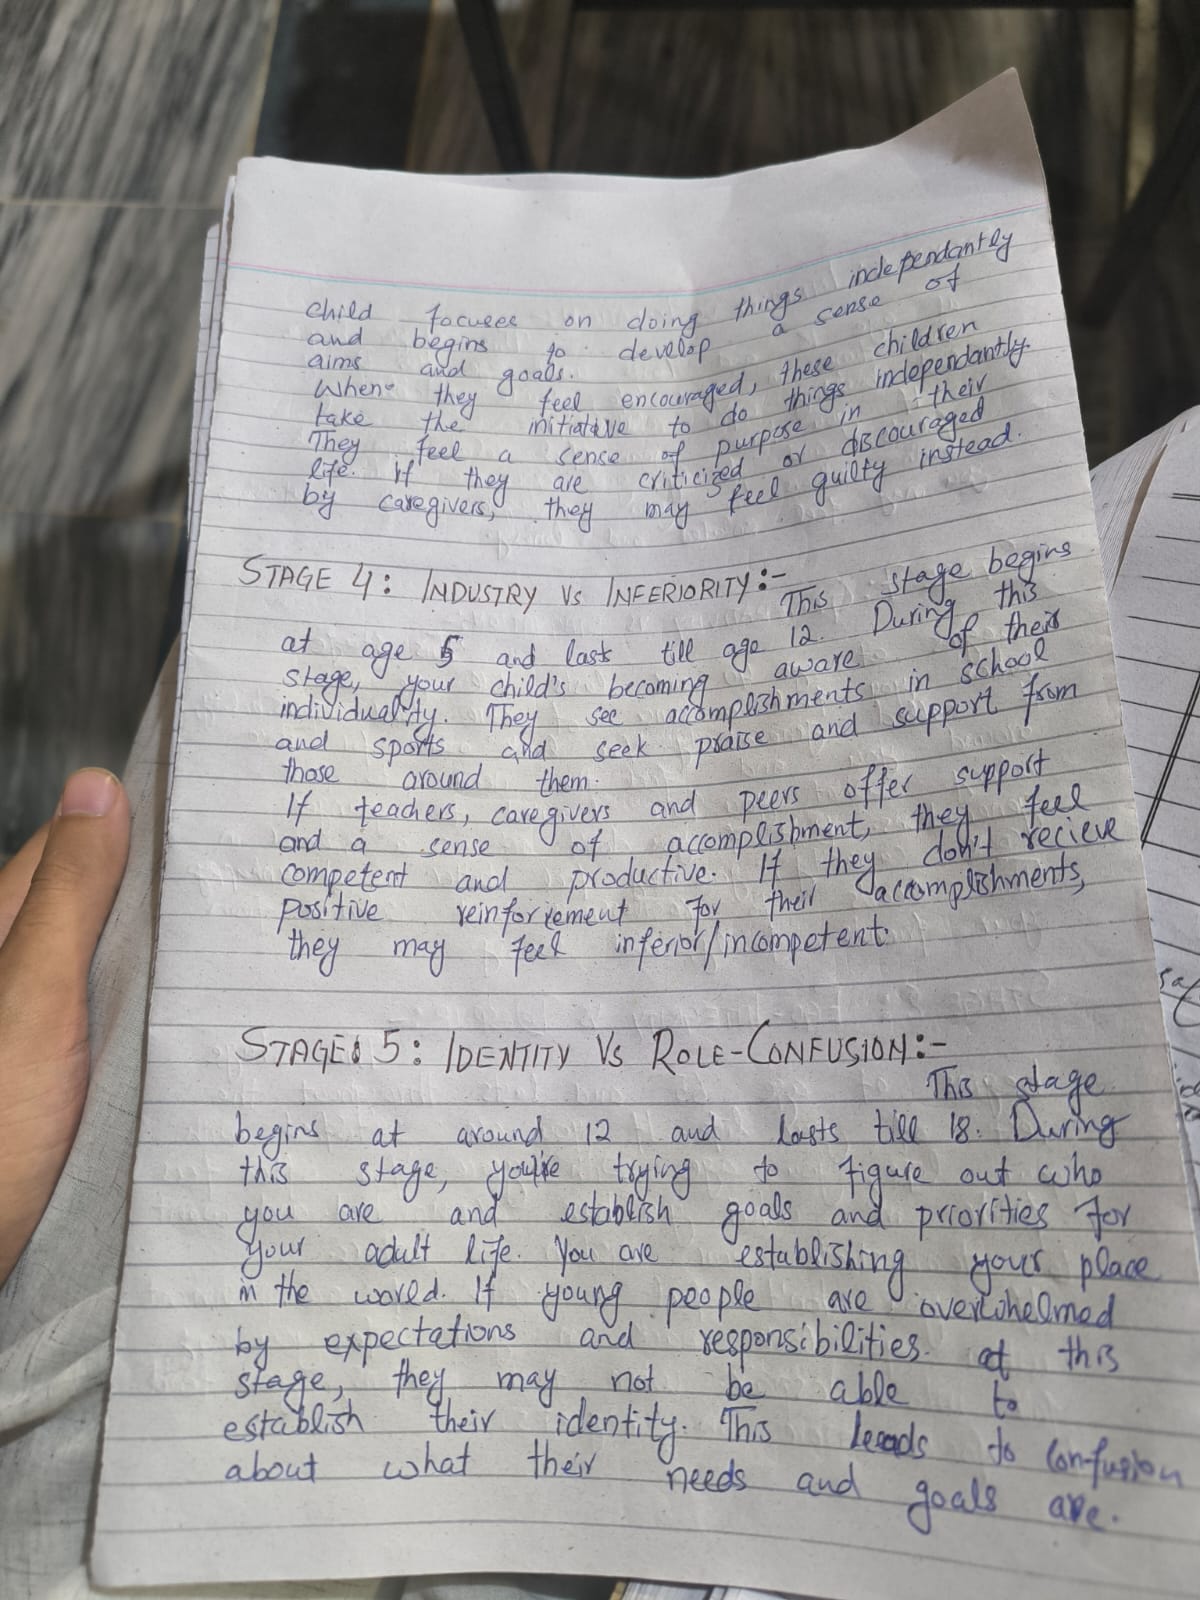 child focuses on doing things independantly
and begins to develop a sense of
aims and goals.
When they feel encouraged, these children
take the initiative to do things independantly.
They feel a sense of purpose in their
life. if they are criticized or discouraged
by caregivers, they may feel guilty instead.
STAGE 4: INDUSTRY VS INFERIORITY:-
This stage begins
at age 5 and lasts till age 12. During this
stage, your child's becoming aware of their
individuality. They see accomplishments in school
and sports and seek praise and support from
those around them.
If teachers, caregivers and peers offer support
and a sense of accomplishment, they feel
competent and productive. If they don't recieve
positive reinforcement for their accomplishments,
they may feel inferior/incompetent.
STAGE 5: IDENTITY VS ROLE-CONFUSION:-
This stage
begins at around 12 and lasts till 18. During
this stage, you're trying to figure out who
you are and establish goals and priorities for
your adult life. You are establishing your place
in the world. If young people are overwhelmed
by expectations and responsibilities. at this
stage, they may not be able to
establish their identity. This leads to confusion
about what their needs and goals are.